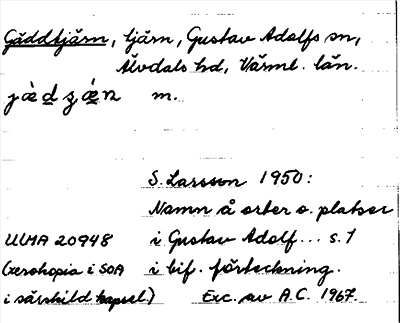 Gäddtjärn, tjärn, Gustav Adolfs sn,
Älvdals hd, Värml. län.
jæ̀dzæ̀n m.
S. Larsson 1950:
Namn å orter o. platser
ULMA 20948 i Gustav Adolf... s. 1
(xerokopia i SOA i bif. förteckning.
i särskild kapsel) Exc. av A.C. 1967.